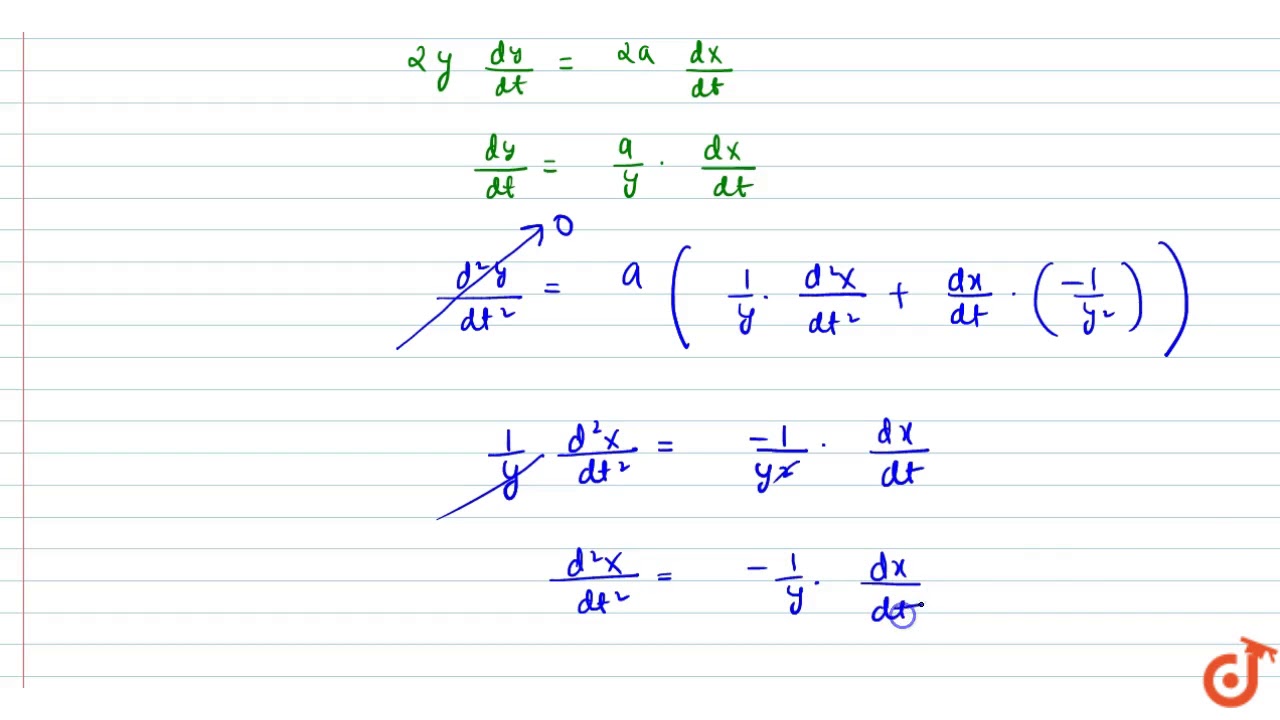 2y dy/dt = 2a dx/dt
dy/dt = a/y · dx/dt
0
d²y/dt² = a ( 1/y · d²x/dt² + dx/dt · ( -1/y² ) )
1/y d²x/dt² = -1/y² · dx/dt
d²x/dt² = - 1/y · dx/dt